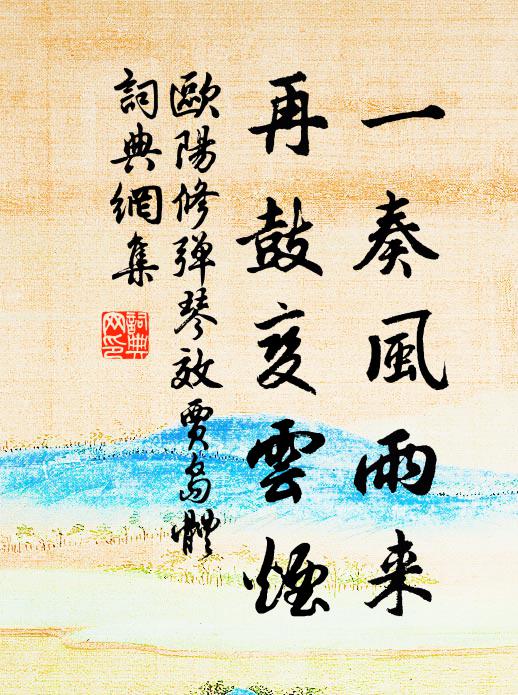 一奏風雨来
再鼓变雲煙
歐陽修弹琴效賈島體
詞典網集
詞典网印